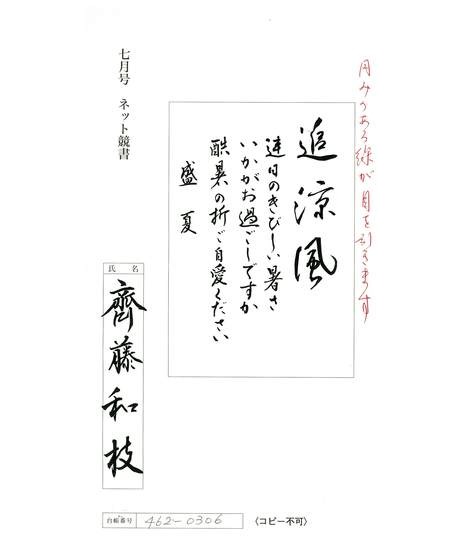 円みのある線が目を引きます
追涼風
連日のきびしい暑さ
いかがお過ごしですか
酷暑の折ご自愛ください
盛夏
七月号 ネット競書
氏名
齊藤和枝
台帳番号 462-0306
〈コピー不可〉